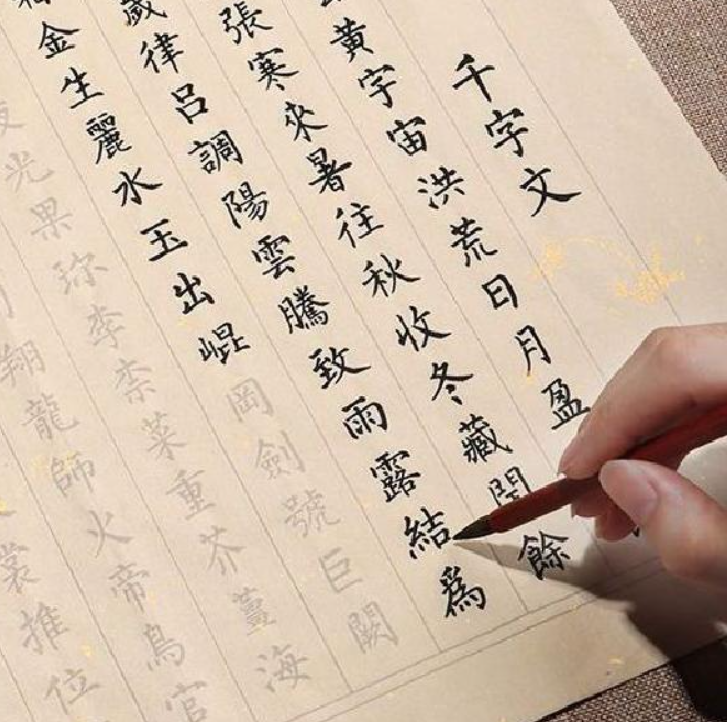 千字文
黃宇宙洪荒日月盈
張寒來暑往秋收冬藏閏餘
歲律呂調陽雲騰致雨露結爲
金生麗水玉出崐岡劍號巨闕
光果珍李柰菜重芥薑海
翔龍師火帝鳥官
裳推位